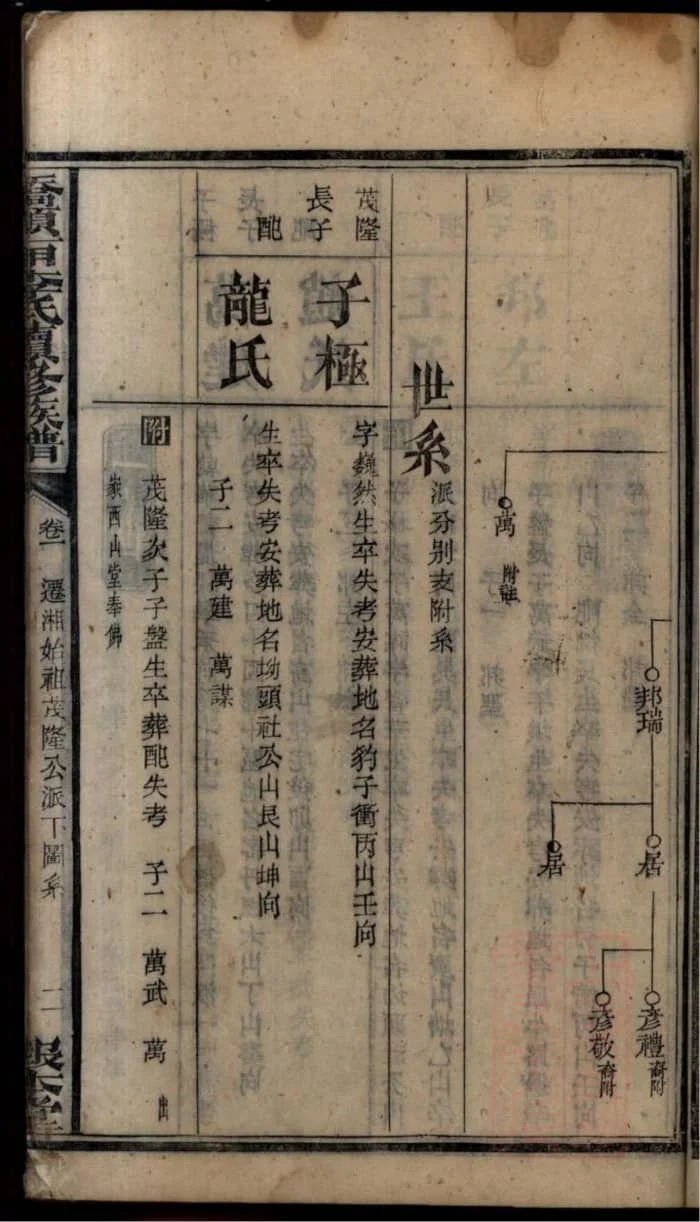 邦瑞
居
居
彥禮 裔附
彥敬 裔附
萬 附註
世系 派分別支附系
茂隆長子 子極 字巍然生卒失考安葬地名豹子衝丙山壬向
配 龍氏 生卒失考安葬地名坳頭社公山艮山坤向
子二 萬建 萬謀
附 茂隆次子子盤生卒葬配失考 子二 萬武 萬 出
家西山堂奉佛
氏續修族譜 卷一 遷湘始祖茂隆公派下圖系 二